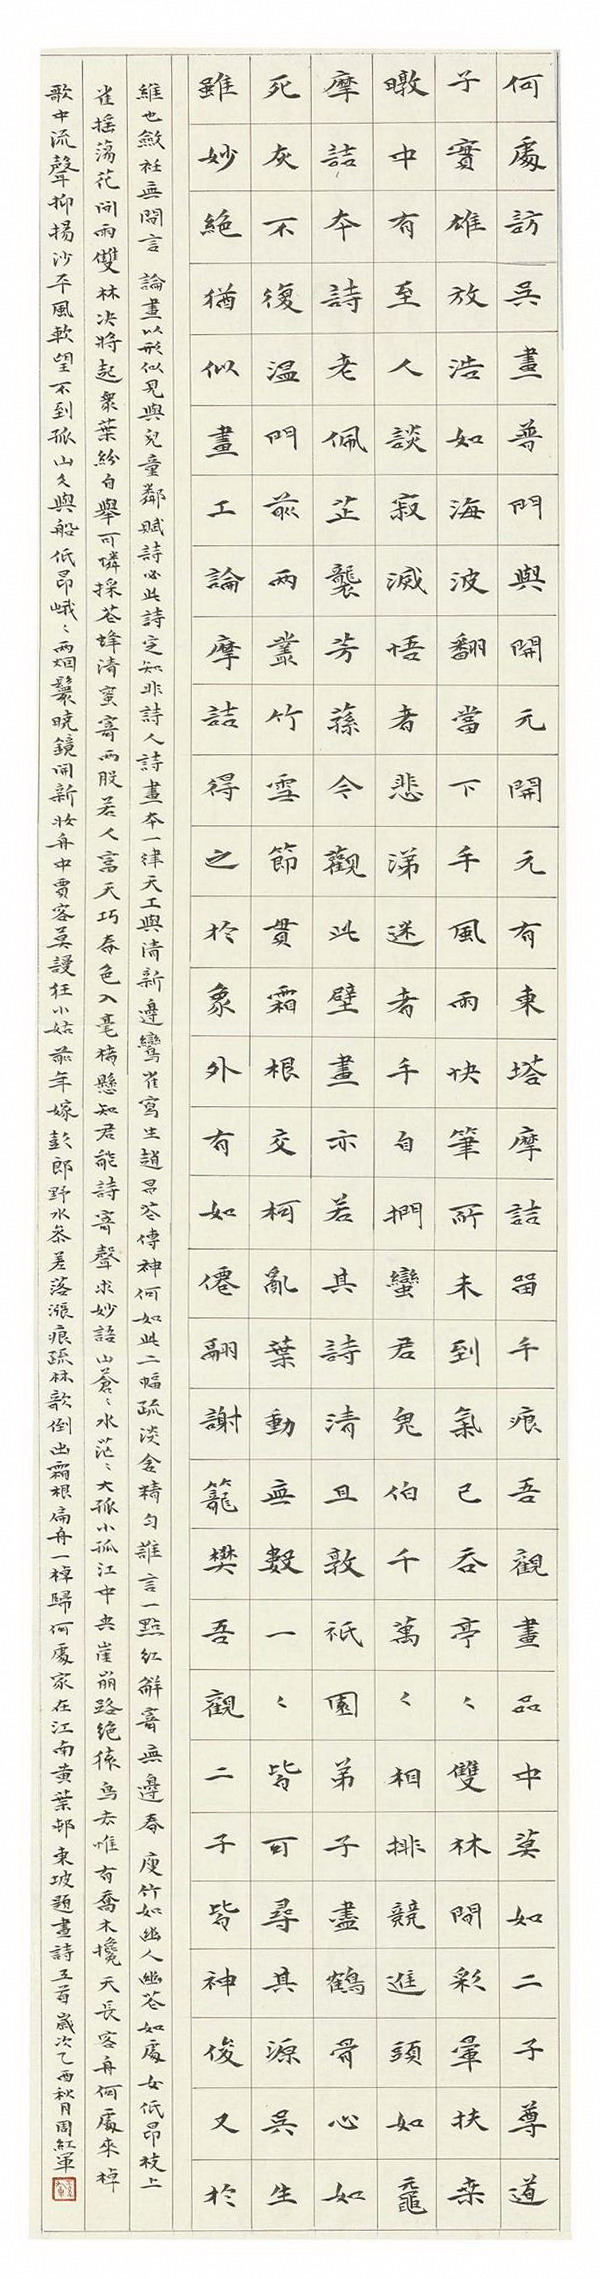 何處訪吳畫普門與開元開元有東塔摩詰留手痕吾觀畫品中莫如二子尊道
子實雄放浩如海波翻當下手風雨快筆所未到氣已吞亭〻雙林間彩暈扶桒
暾中有至人談寂滅悟者悲涕迷者手自捫蠻君鬼伯千萬〻相排競進頭如黿
摩詰本詩老佩芷襲芳蓀今觀此壁畫亦若其詩清且敦祇園弟子盡鶴骨心如
死灰不復温門前兩叢竹雪節貫霜根交柯亂葉動無數一〻皆可尋其源吳生
雖妙絕猶似畫工論摩詰得之於象外有如僊翮謝籠樊吾觀二子皆神俊又於
維也斂衽無間言 論畫以形似見與兒童鄰賦詩必此詩定知非詩人詩畫本一律天工與清新邊鸞雀寫生趙昌花傳神何如此二幅疏淡含精勻誰言一點紅解寄無邊春 瘦竹如幽人幽花如處女低昂枝上
雀摇蕩花間雨雙林决將起衆葉紛自舉可憐採花蜂清蜜寄兩股若人富天巧春色入毫楮懸知君能詩寄聲求妙語山蒼〻水茫〻大孤小孤江中央崖崩路絕猿鳥去惟有喬木攙天長客舟何處來棹
歌中流聲抑揚沙平風軟望不到孤山久與船低昂峨〻兩烟鬟曉鏡開新妝舟中賈客莫謾狂小姑前年嫁彭郎野水參差落漲痕疏林欹倒出霜根扁舟一棹歸何處家在江南黃葉邨 東坡題畫詩五首歲次乙酉秋月周紅軍